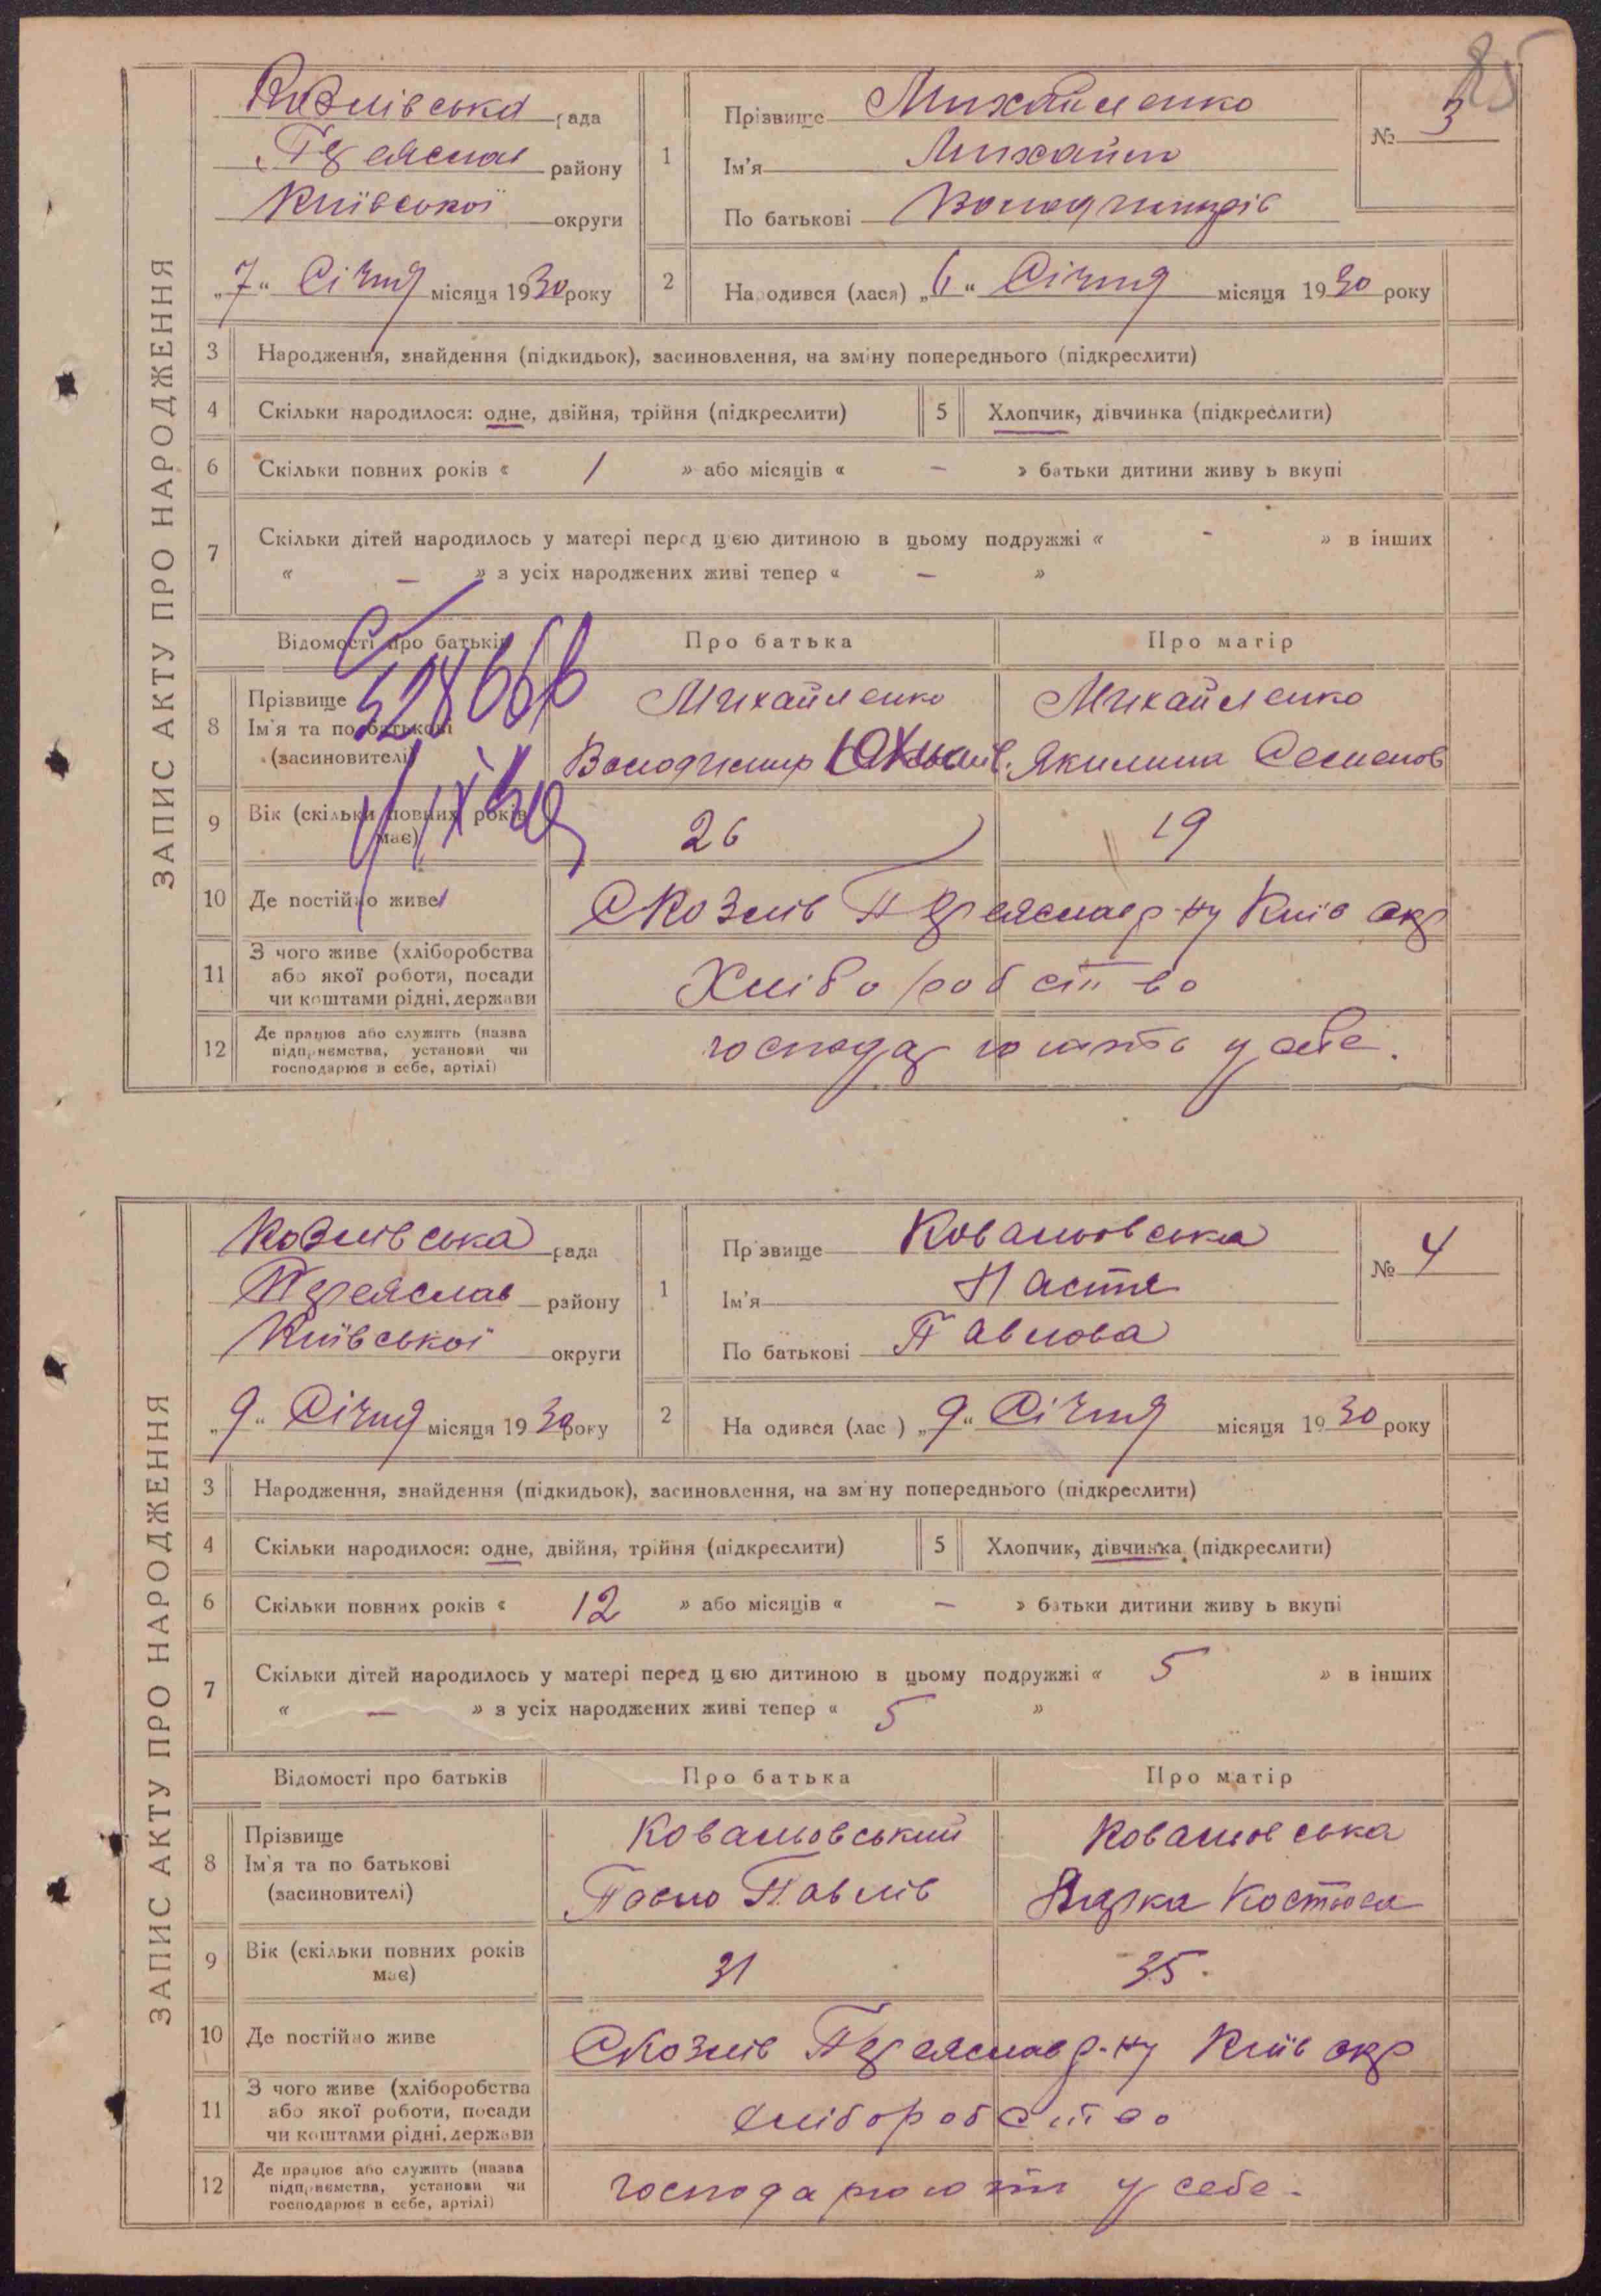 85
ЗАПИС АКТУ ПРО НАРОДЖЕННЯ
Козлівська рада
Переяслав району
Київської округи
„7“ Січня місяця 1930 року
1
Прізвище Михайленко
Ім'я Михайло
По батькові Володимирів
№ 3
2 Народився (лася) „6“ Січня місяця 1930 року
3 Народження, знайдення (підкидьок), засиновлення, на зміну попереднього (підкреслити)
4 Скільки народилося: одне, двійня, трійня (підкреслити) 5 Хлопчик, дівчинка (підкреслити)
6 Скільки повних років « 1 » або місяців « — » батьки дитини живу ь вкупі
7 Скільки дітей народилось у матері перед цією дитиною в цьому подружжі « - » в інших
« — » з усіх народжених живі тепер « — »
Відомості про батьків Про батька Про матір
8 Прізвище Михайленко Михайленко
Ім'я та по батькові
(засиновителі) Володимир Якилина Семенов
9 Вік (скільки повних років має) 26 19
10 Де постійно живе С Козлів Переяслав р-ну Київ окр
11 З чого живе (хліборобства
або якої роботи, посади
чи коштами рідні, держави Хліборобство
12 Де працює або служить (назва
підприємства, установи чи
господарює в себе, артілі) господарюють у себе.
ЗАПИС АКТУ ПРО НАРОДЖЕННЯ
Козлівська рада
Переяслав району
Київської округи
„9“ Січня місяця 1930 року
1
Прізвище Ковальовська
Ім'я Настя
По батькові Павлова
№ 4
2 На одився (лас ) „9“ Січня місяця 1930 року
3 Народження, знайдення (підкидьок), засиновлення, на зм ну попереднього (підкреслити)
4 Скільки народилося: одне, двійня, трійня (підкреслити) 5 Хлопчик, дівчинка (підкреслити)
6 Скільки повних років « 12 » або місяців « — » батьки дитини живу ь вкупі
7 Скільки дітей народилось у матері перед цією дитиною в цьому подружжі « 5 » в інших
« — » з усіх народжених живі тепер « 5 »
Відомості про батьків Про батька Про матір
8 Прізвище Ковальовський Ковальовська
Ім'я та по батькові
(засиновителі) Павло Павлів Вярка Костюва
9 Вік (скільки повних років має) 31 35.
10 Де постійно живе С Козлів Переяслав р-ну Київ окр
11 З чого живе (хліборобства
або якої роботи, посади
чи коштами рідні, держави хліборобство
12 Де працює або служить (назва
підприємства, установи чи
господарює в себе, артілі) господарюють у себе.